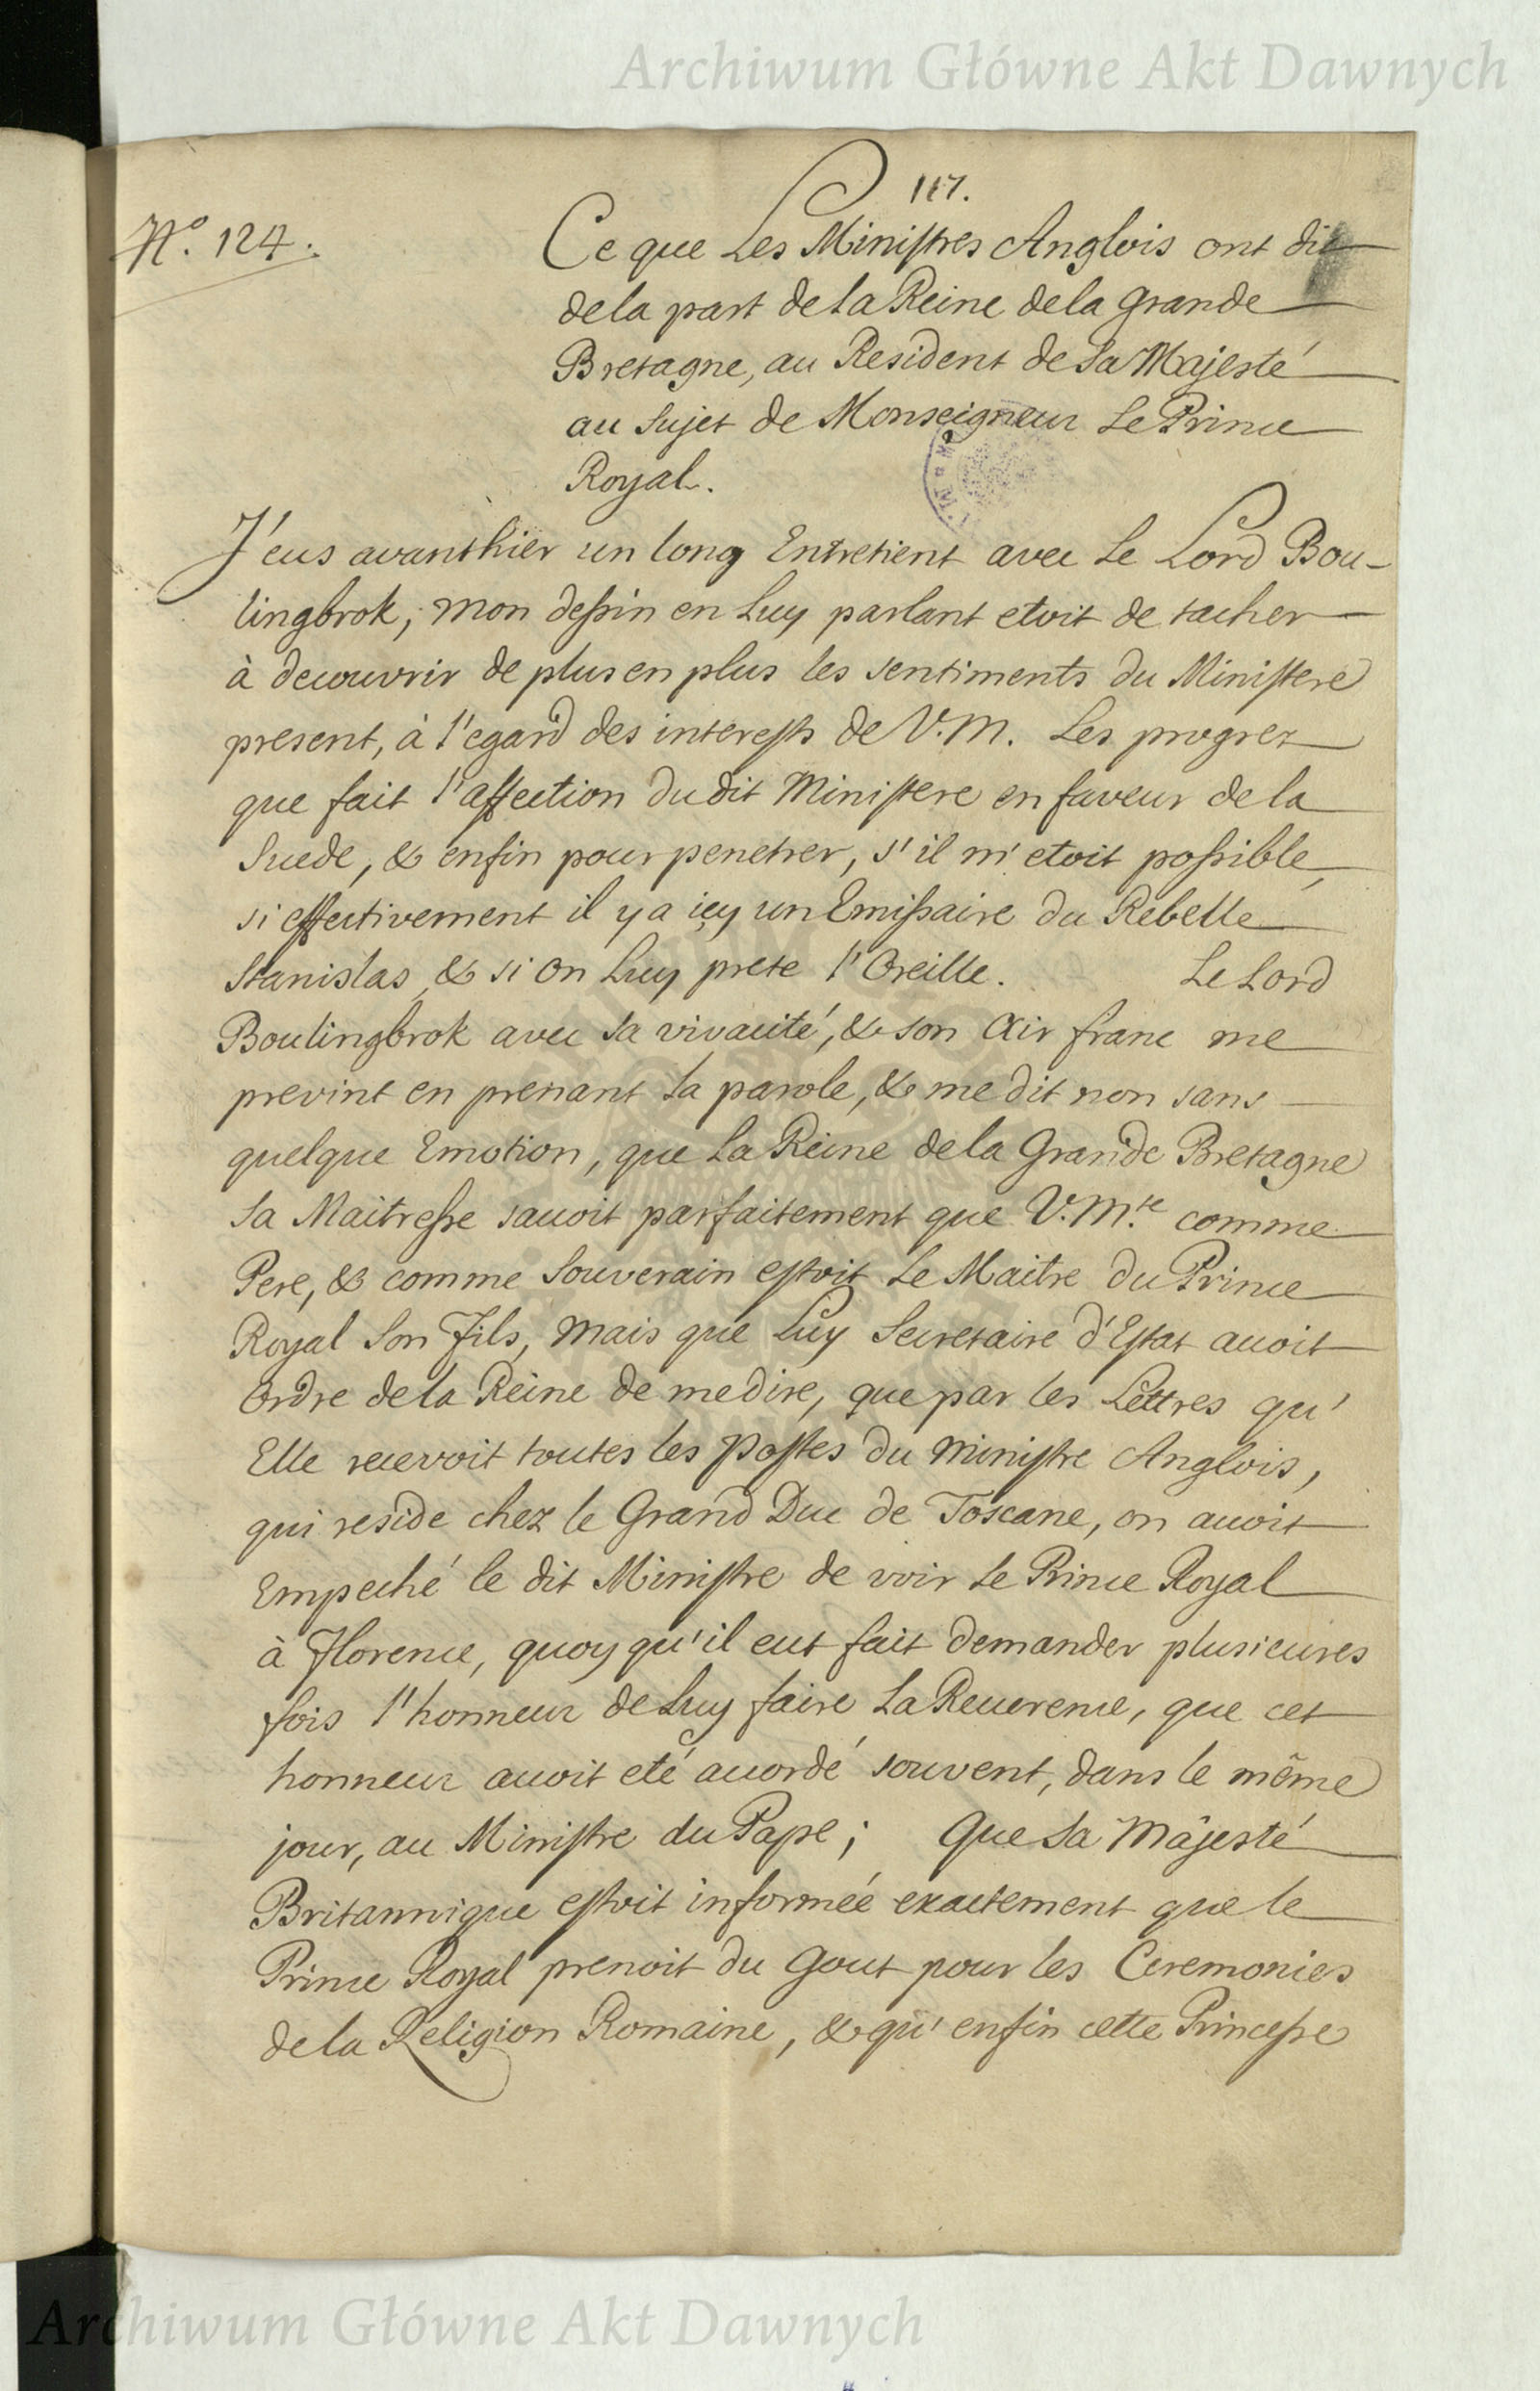 Archiwum Główne Akt Dawnych
117.
N.º 124.
Ce que Les Ministres Anglois ont dit
de la part de la Reine de la grande
Bretagne, au Resident de Sa Majesté
au Sujet de Monseigneur Le Prince
Royal.
J'eus avanthier un long Entretient avec Le Lord Bou-
lingbrok, mon dessin en Luy parlant etoit de tacher
à decouvrir de plus en plus les sentiments du Ministere
present, à l'egard des interests de V.M. Les progrez
que fait l'affection du dit Ministere en faveur de la
Suede, & enfin pour penetrer, s'il m'etoit possible,
si effectivement il y a içy un Emissaire du Rebelle
Stanislas, & si on Luy prete l'Oreille. Le Lord
Boulingbrok avec sa vivacité, & son Air franc me
prevint en prenant la parole, & me dit non sans
quelque Emotion, que La Reine de la Grande Bretagne
Sa Maitresse sauoit parfaitement que V. M.te comme
Pere, & comme Souverain estoit Le Maitre du Prince
Royal Son Fils, mais que Luy Secretaire d'Estat auoit
Ordre de la Reine de me dire, que par les Lettres qu'
Elle recevoit toutes les Postes du Ministre Anglois,
qui reside chez le Grand Duc de Toscane, on auoit
Empeché le dit Ministre de voir Le Prince Royal
à Florence, quoy qu'il eut fait demander plusieures
fois l'honneur de Luy faire La Reuerence, que cet
honneur auoit eté accordé souvent, dans le même
jour, au Ministre du Pape; Que Sa Majesté
Britannique estoit informée exactement que le
Prince Royal prenoit du Gout pour les Ceremonies
de la Religion Romaine, & qu'enfin cette Princesse
Archiwum Główne Akt Dawnych